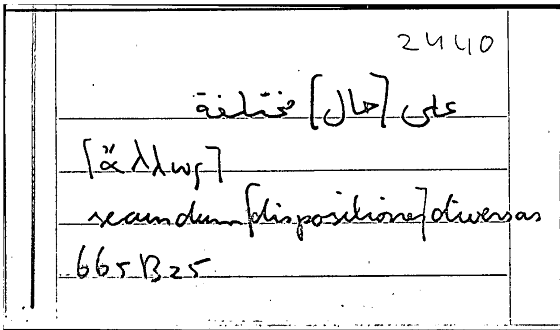 2440
على [حال] مختلفة
[ἄλλως]
secundum [dispositione] diversas
665B25